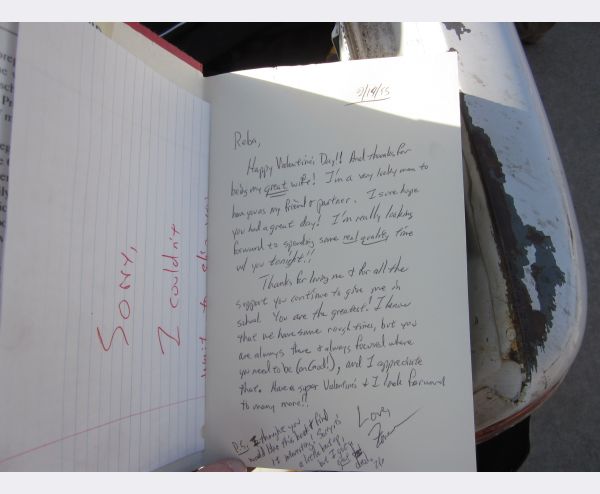 Sorry,
I couldn't
Happy Valentine's Day!! And thanks for
being my great wife! I'm a very lucky man to
have you as my friend & partner. I sure hope
you had a great day! I'm really looking
forward to spending some real quality time
w/ you tonight!!
Thanks for loving me & for all the
support you continue to give me in
school. You are the greatest! I know
that we have some rough times, but you
are always there & always focused where
you need to be (on God!), and I appreciate
that. Have a super Valentine's & I look forward
to many more!!
Love,
P.S. I thought you
would like this book & find
it interesting! Sorry it's
a little beat up,
but I got a
good deal.